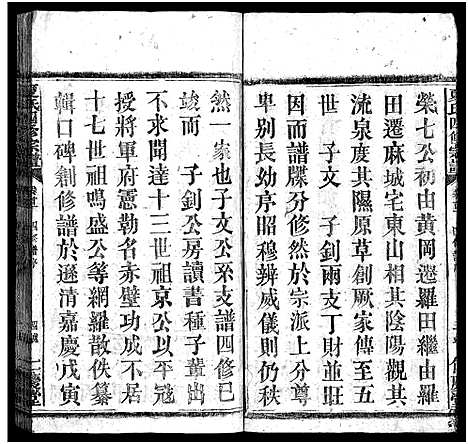 榮七公初由黃岡遷羅田繼由羅
田遷麻城宅東山相其陰陽觀其
流泉度其隰原草創厥家傳至五
世　子文　子釗兩支丁口繁衍
於世譜牒分修然於宗派上分尊
卑別長幼序昭穆辨威儀儼
然一家也子文公系支譜四修已
竣而　子釗公房讀書種子輩出
不求聞達十三世祖京公以平寇
授將軍府憲勒名赤壁功成不居
十七世祖鳴盛公等網羅散佚纂
輯口碑創修譜於遜清嘉慶戊寅
夏氏四修宗譜